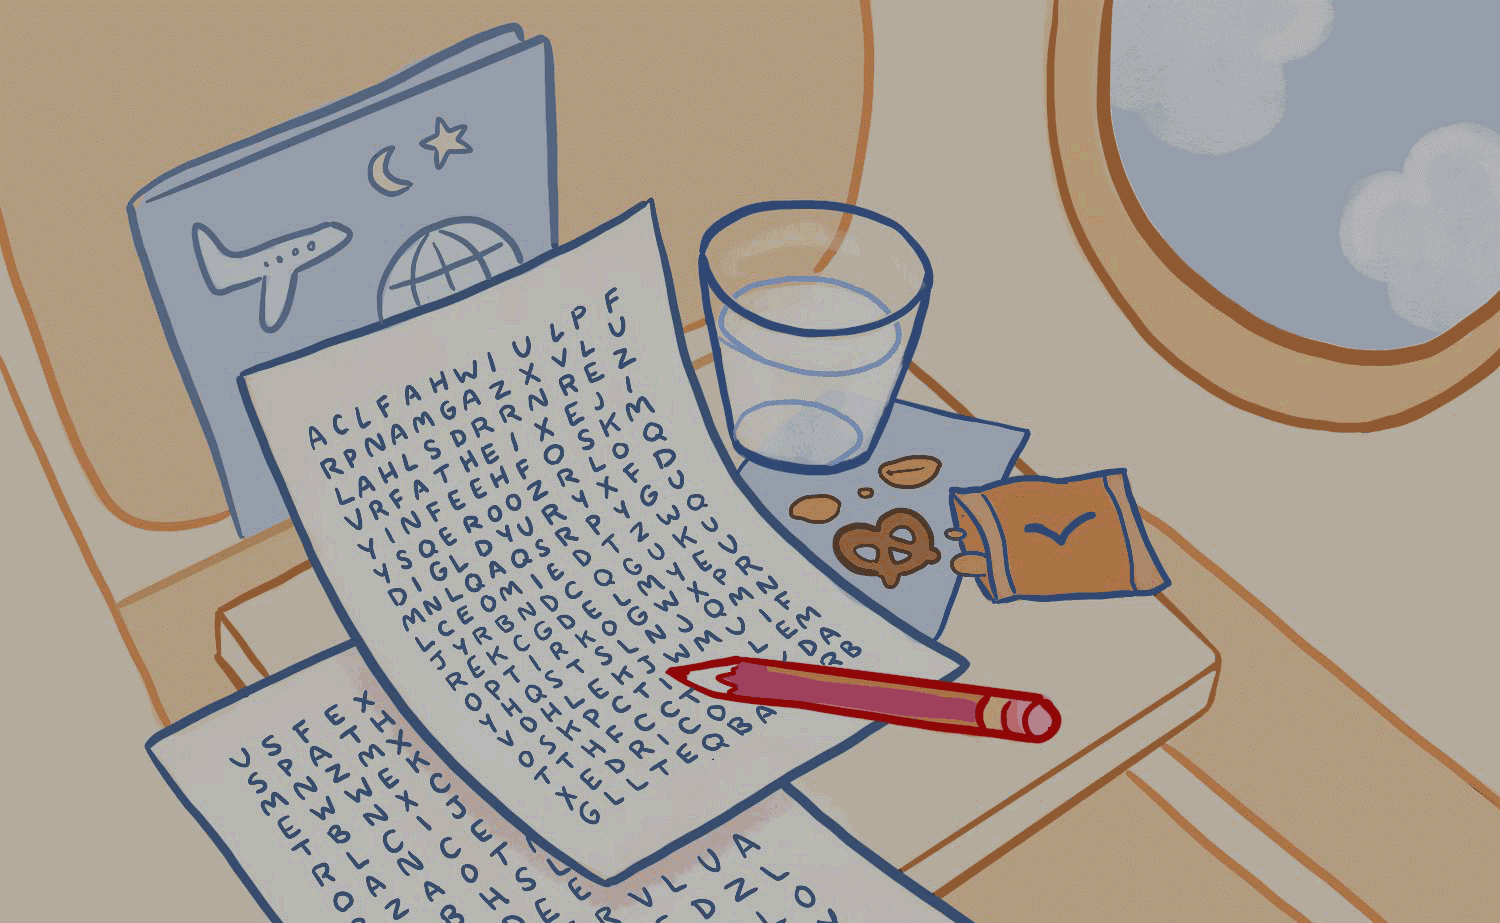 A C L F A H W I U L P F
R P N A M G A Z X V L U
L A H L S D R R N R E Z
V R F A T H E I X E J I
Y I N F E E H F O S K M
Y S Q E R O O Z R L O Q
D I G L D Y U R Y X F D
M N L Q A Q S R P Y G U
L C E O M I E D T Z W Q
J Y R B N D C Q G U K U
R E K C G D E L M Y E V
O P T I R K O G W X P R
Y H Q S T S L N J Q M N
V O H L E K J W M U I F
O S K P C T I L E M
T T H F C C T D A
X E D R I C O R B
G L L T E Q B A
U S F E X
S P A T H
M N Z M X
E W W E K
T B N X C
R L C I J
O A N C E
R V L U A